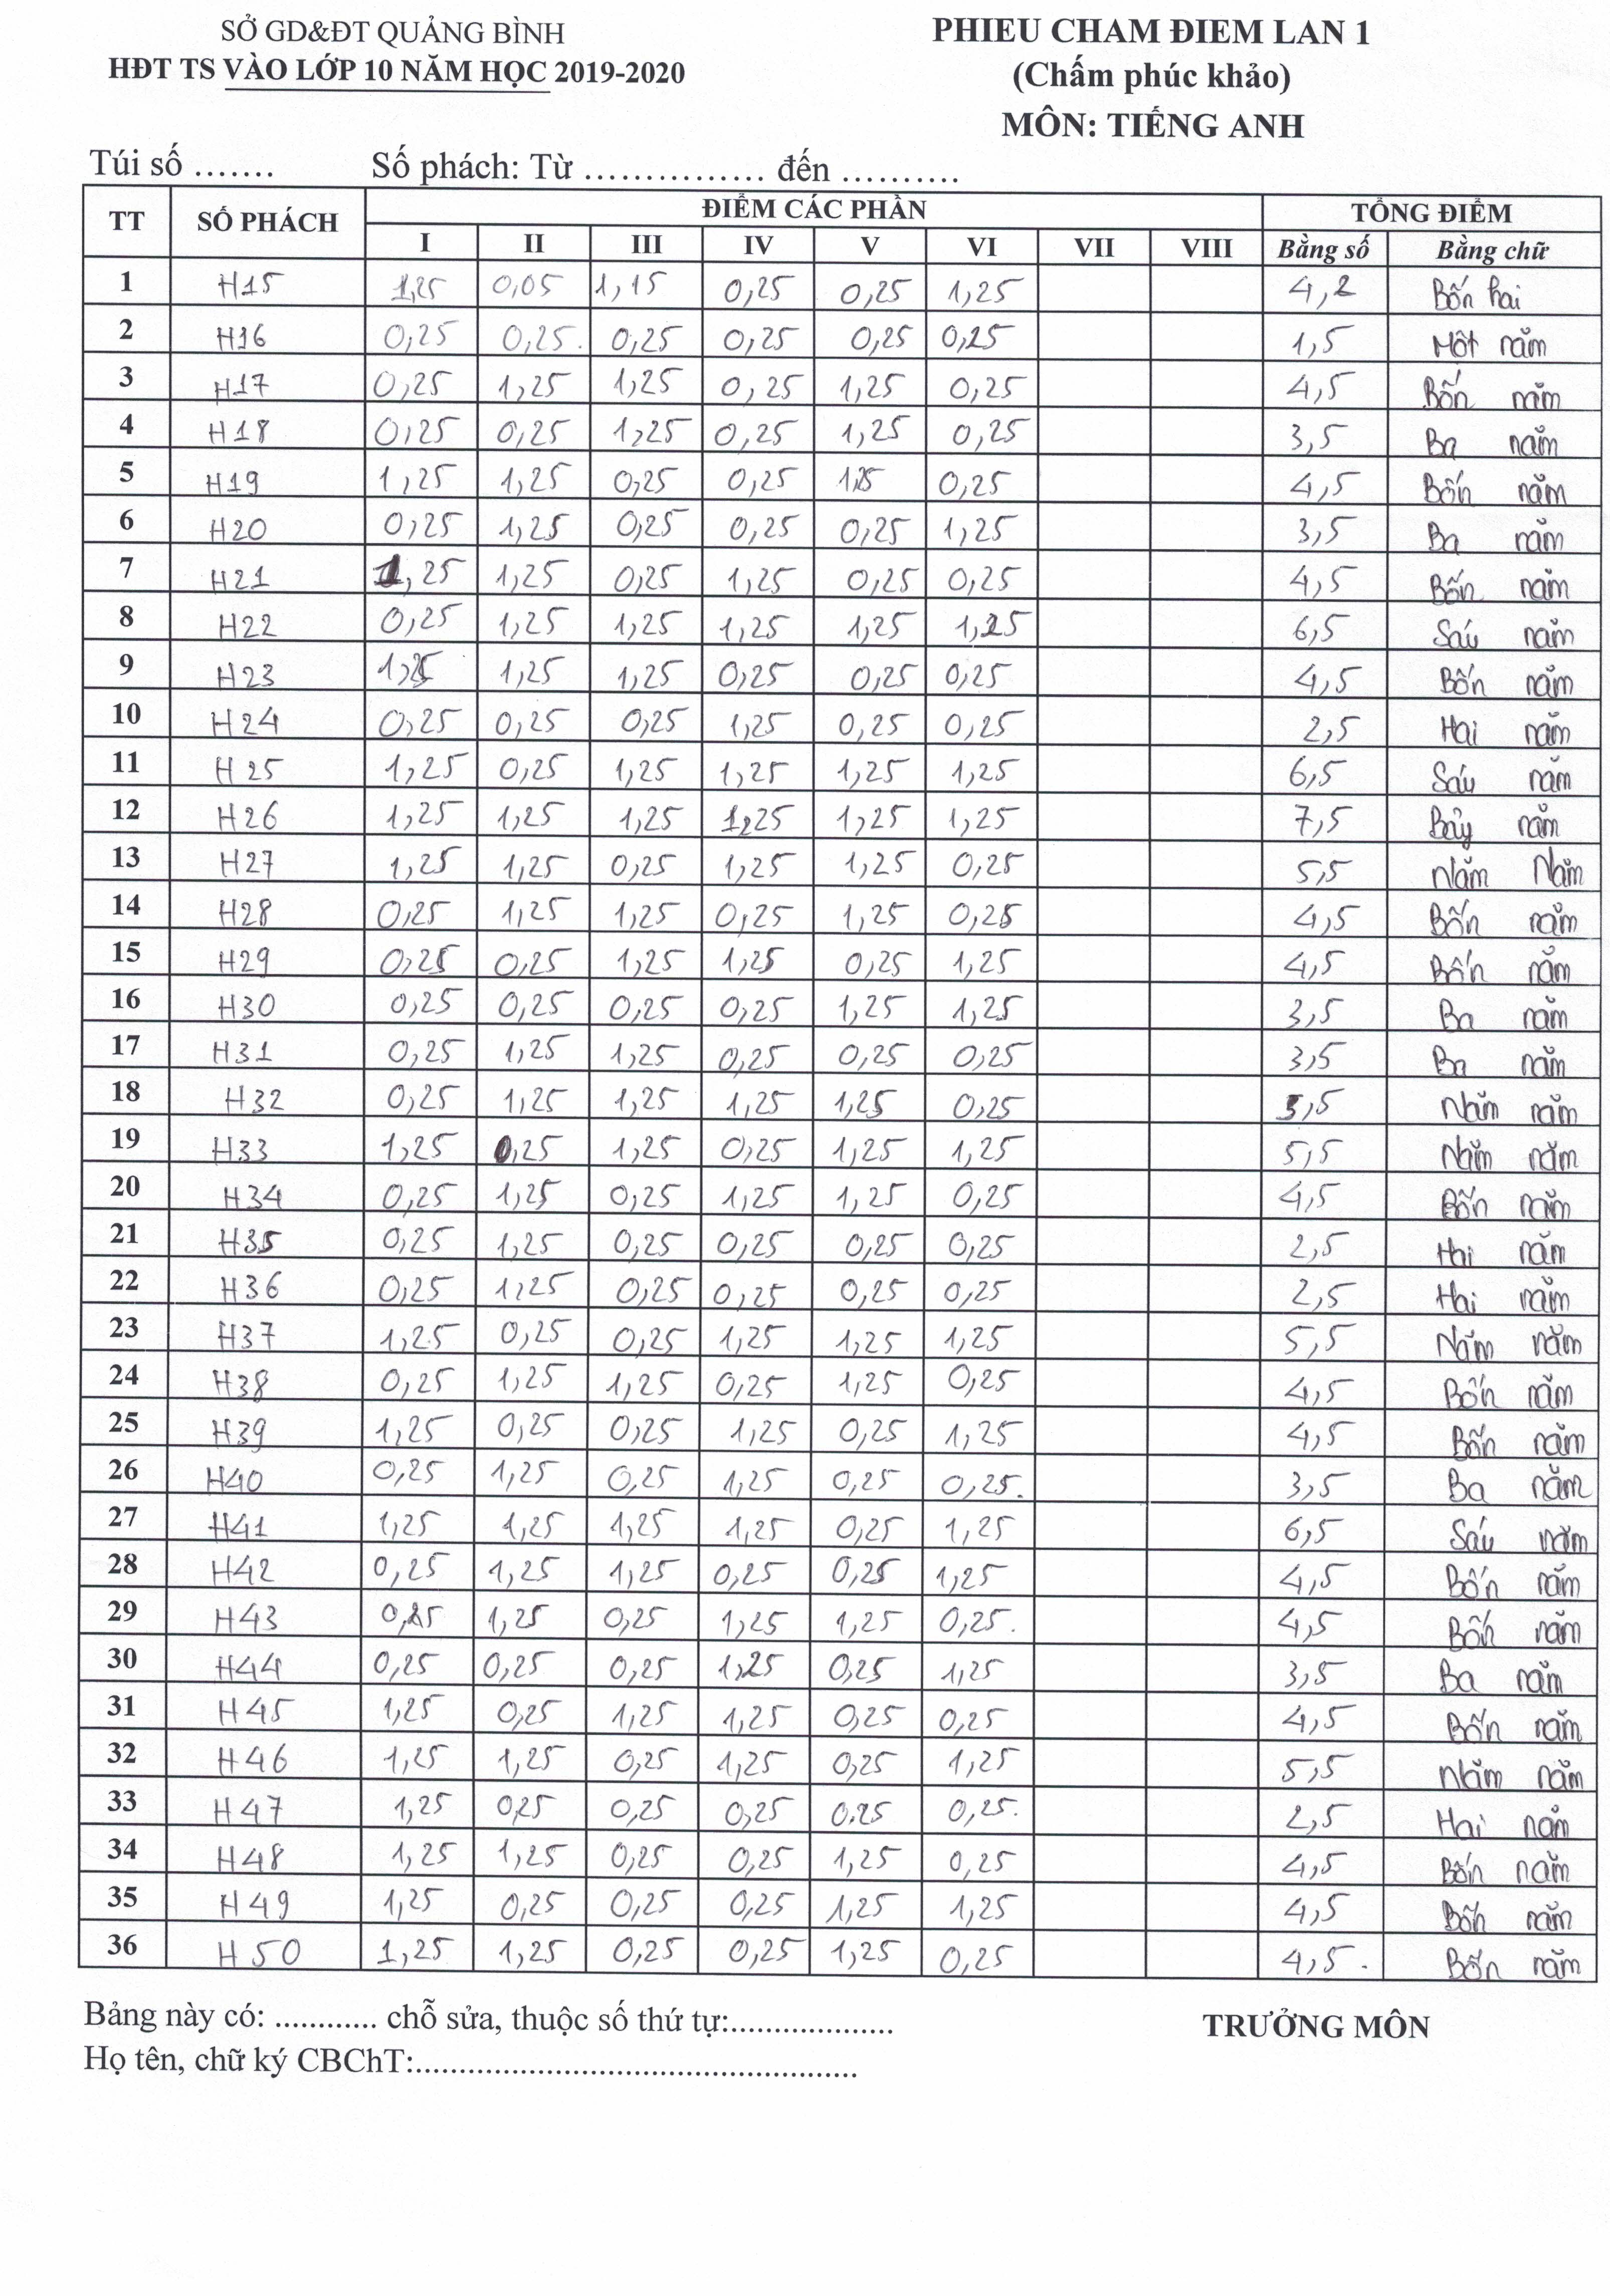 SỞ GD&ĐT QUẢNG BÌNH
HĐT TS VÀO LỚP 10 NĂM HỌC 2019-2020
PHIEU CHAM ĐIEM LAN 1
(Chấm phúc khảo)
MÔN: TIẾNG ANH
Túi số ....... Số phách: Từ ............... đến ..........
TT SỐ PHÁCH ĐIỂM CÁC PHẦN TỔNG ĐIỂM
I II III IV V VI VII VIII Bằng số Bằng chữ
1 H15 1,25 0,05 1,15 0,25 0,25 1,25 4,2 Bốn hai
2 H16 0,25 0,25. 0,25 0,25 0,25 0,25 1,5 Một năm
3 H17 0,25 1,25 1,25 0,25 1,25 0,25 4,5 Bốn năm
4 H18 0,25 0,25 1,25 0,25 1,25 0,25 3,5 Ba năm
5 H19 1,25 1,25 0,25 0,25 1,25 0,25 4,5 Bốn năm
6 H20 0,25 1,25 0,25 0,25 0,25 1,25 3,5 Ba năm
7 H21 1,25 1,25 0,25 1,25 0,25 0,25 4,5 Bốn năm
8 H22 0,25 1,25 1,25 1,25 1,25 1,25 6,5 Sáu năm
9 H23 1,25 1,25 1,25 0,25 0,25 0,25 4,5 Bốn năm
10 H24 0,25 0,25 0,25 1,25 0,25 0,25 2,5 Hai năm
11 H25 1,25 0,25 1,25 1,25 1,25 1,25 6,5 Sáu năm
12 H26 1,25 1,25 1,25 1,25 1,25 1,25 7,5 Bảy năm
13 H27 1,25 1,25 0,25 1,25 1,25 0,25 5,5 Năm Năm
14 H28 0,25 1,25 1,25 0,25 1,25 0,25 4,5 Bốn năm
15 H29 0,25 0,25 1,25 1,25 0,25 1,25 4,5 Bốn năm
16 H30 0,25 0,25 0,25 0,25 1,25 1,25 3,5 Ba năm
17 H31 0,25 1,25 1,25 0,25 0,25 0,25 3,5 Ba năm
18 H32 0,25 1,25 1,25 1,25 1,25 0,25 5,5 Năm năm
19 H33 1,25 0,25 1,25 0,25 1,25 1,25 5,5 Năm năm
20 H34 0,25 1,25 0,25 1,25 1,25 0,25 4,5 Bốn năm
21 H35 0,25 1,25 0,25 0,25 0,25 0,25 2,5 Hai năm
22 H36 0,25 1,25 0,25 0,25 0,25 0,25 2,5 Hai năm
23 H37 1,25 0,25 0,25 1,25 1,25 1,25 5,5 Năm năm
24 H38 0,25 1,25 1,25 0,25 1,25 0,25 4,5 Bốn năm
25 H39 1,25 0,25 0,25 1,25 0,25 1,25 4,5 Bốn năm
26 H40 0,25 1,25 0,25 1,25 0,25 0,25. 3,5 Ba năm
27 H41 1,25 1,25 1,25 1,25 0,25 1,25 6,5 Sáu năm
28 H42 0,25 1,25 1,25 0,25 0,25 1,25 4,5 Bốn năm
29 H43 0,25 1,25 0,25 1,25 1,25 0,25. 4,5 Bốn năm
30 H44 0,25 0,25 0,25 1,25 0,25 1,25 3,5 Ba năm
31 H45 1,25 0,25 1,25 1,25 0,25 0,25 4,5 Bốn năm
32 H46 1,25 1,25 0,25 1,25 0,25 1,25 5,5 Năm năm
33 H47 1,25 0,25 0,25 0,25 0.25 0,25. 2,5 Hai năm
34 H48 1,25 1,25 0,25 0,25 1,25 0,25 4,5 Bốn năm
35 H49 1,25 0,25 0,25 0,25 1,25 1,25 4,5 Bốn năm
36 H50 1,25 1,25 0,25 0,25 1,25 0,25 4,5. Bốn năm
Bảng này có: ............ chỗ sửa, thuộc số thứ tự:...................
TRƯỞNG MÔN
Họ tên, chữ ký CBChT:....................................................